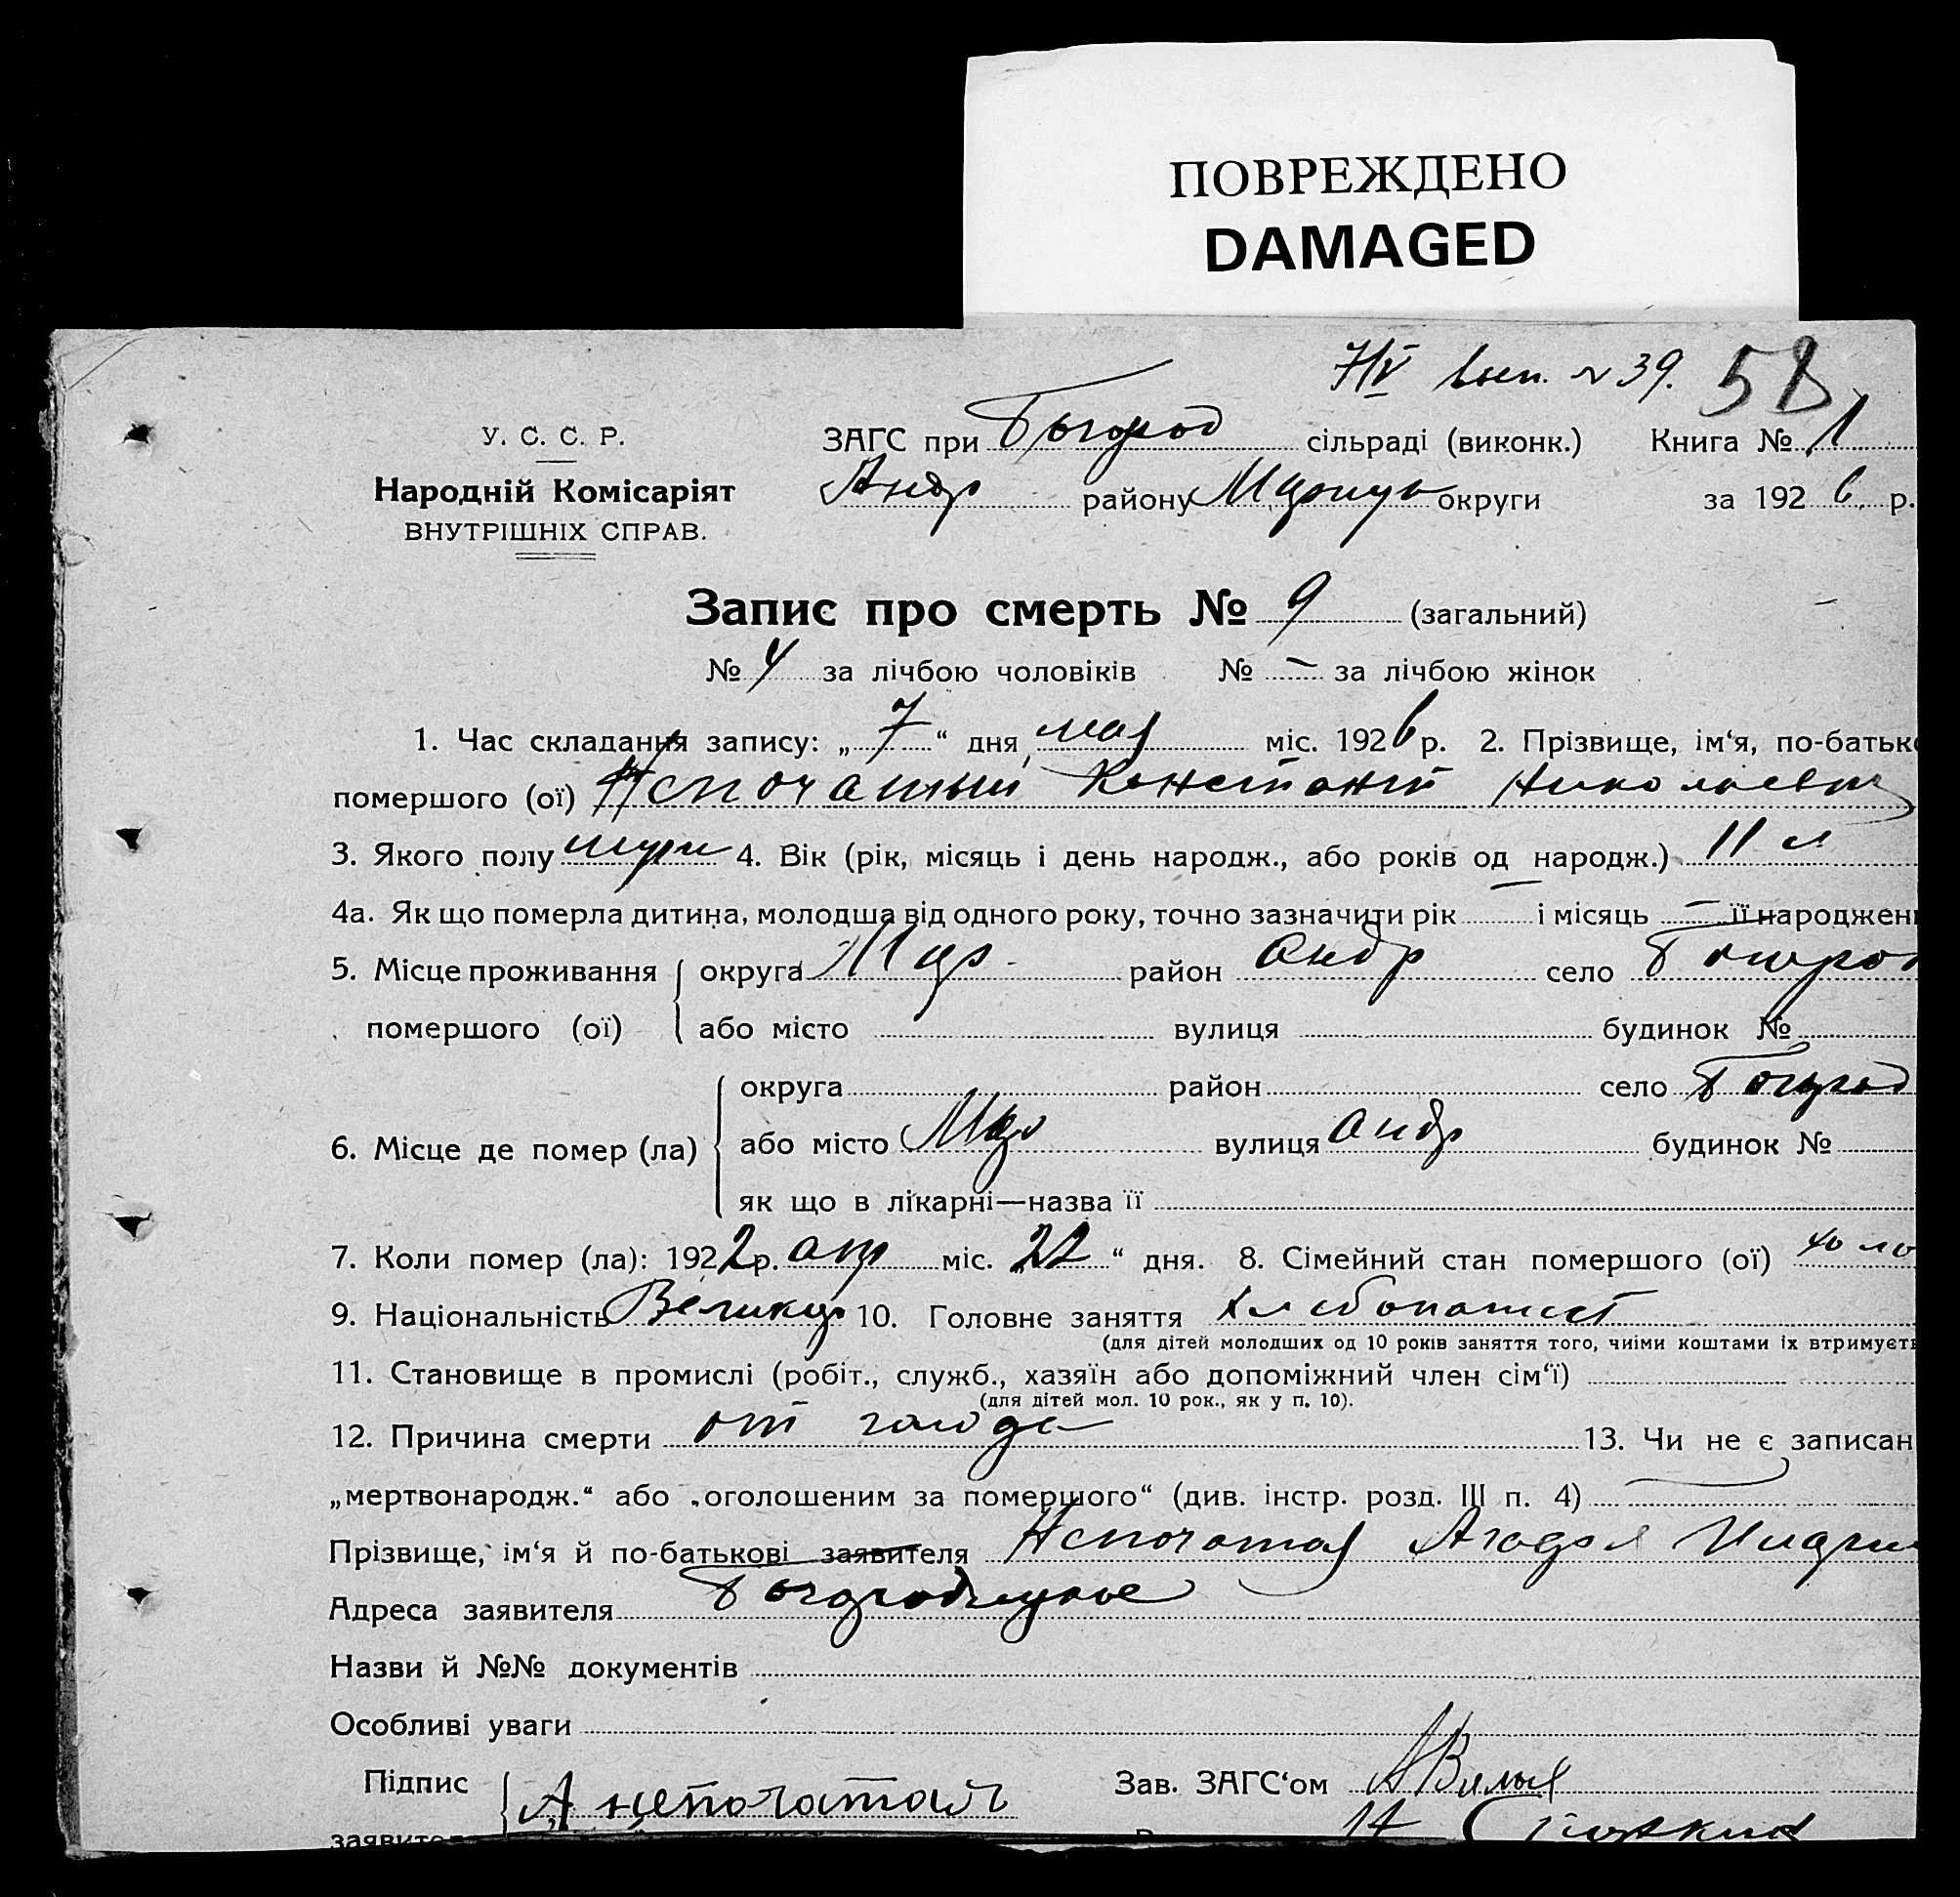 ПОВРЕЖДЕНО
DAMAGED
7/V вып. № 39. 58
У. С. С. Р. ЗАГС при Богород сільраді (виконк.) Книга № 1
Народній Комісаріят Андр району Мариуп округи за 1926 р.
ВНУТРІШНІХ СПРАВ.
Запис про смерть № 9 (загальний)
№ 4 за лічбою чоловіків № — за лічбою жінок
1. Час складання запису: „7“ дня мая міс. 1926 р. 2. Прізвище, ім‘я, по-батьк
помершого (ої) Непочатый Констант Николаевич
3. Якого полу муж 4. Вік (рік, місяць і день народж., або років од народж.) 11 л
4а. Як що померла дитина, молодша від одного року, точно зазначити рік — і місяць — її народжен
5. Місце проживання округа Мар район Андр село Богород
помершого (ої) або місто вулиця будинок №
округа район село Богород
6. Місце де помер (ла) або місто Мар вулиця Андр будинок №
як що в лікарні—назва її
7. Коли помер (ла): 1922 р. апр міс. „22“ дня. 8. Сімейний стан помершого (ої) холо
9. Національність Великор 10. Головне заняття хлебопашест
(для дітей молодших од 10 років заняття того, чиїми коштами їх втримуєть
11. Становище в промислі (робіт., служб., хазяїн або допоміжний член сім‘ї)
(для дітей мол. 10 рок., як у п. 10).
12. Причина смерти от голода 13. Чи не є записан
„мертвонародж.“ або „оголошеним за помершого“ (див. інстр. розд. III п. 4)
Прізвище, ім‘я й по-батькові заявителя Непочатая
Адреса заявителя
Назви й №№ документів
Особливі уваги
Підпис А непочатая Зав. ЗАГС‘ом
заявите